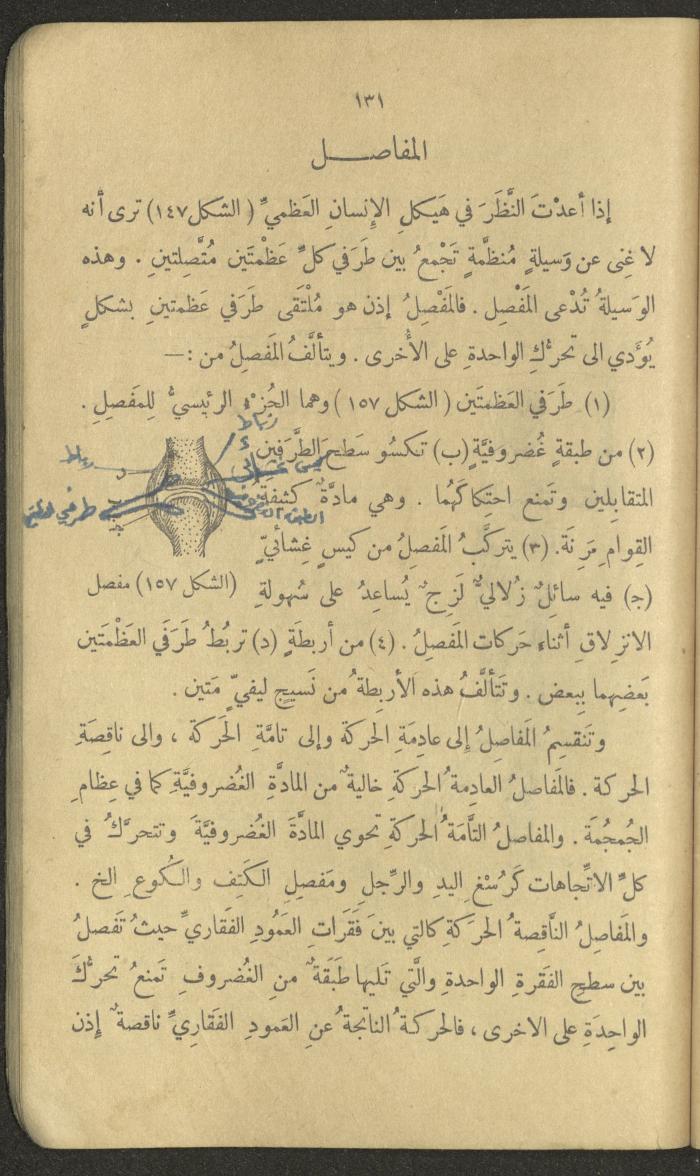 ١٣١
المفاصــل
إذا أعدْتَ النَّظَرَ في هَيكلِ الإنسانِ العَظميِّ ( الشكل ١٤٧ ) ترى أنه
لا غِنى عن وَسيلةٍ مُنظَّمةٍ تَجْمعُ بين طَرَفي كلِّ عَظْمتَين مُتَّصِلتينِ . وهذه
الوَسيلةُ تُدْعى المَفْصِل . فالمَفْصِلُ إذن هو مُلْتَقى طَرَفي عَظمتينِ بشكلٍ
يُؤَدي الى تحرُّكِ الواحدةِ على الأُخرى . ويتألَّفُ المَفصِلُ من : —
(١) طَرَفي العَظمتَين ( الشكل ١٥٧ ) وهما الجُزءُ الرئيسيُّ لِلمَفصِلِ .
رباط
(٢) من طبقةٍ غُضروفيَّةٍ (ب) تكسُو سَطحَ الطَّرَفينِ
رباط
المتقابِلين وتَمنع احتِكاكَهُما . وهي مادَّةٌ كثيفةُ
القِوامِ مَرِنَة. (٣) يتركَّبُ المَفصِلُ من كيسٍ غِشائيٍّ
(ج) فيه سائِلٌ زُلاليٌّ لَزِجٌ يُساعِدُ على سُهولةِ (الشكل ١٥٧) مفصل
الانزِلاقِ أثناء حَركات المَفصِلُ . (٤) من أربطَةٍ (د) تربُطُ طَرَفَي العَظْمَتَين
بَعضِهما بِبعض . وتَتألَّفُ هذه الأربِطةُ من نَسيجٍ ليفيٍّ مَتين .
وتَنقسِمُ المَفاصِلُ إلى عادِمَةِ الحركة وإلى تامَّةِ الحَرَكة ، والى ناقِصَةِ
الحركة . فالمَفاصلُ العادِمةُ الحركةِ خاليةٌ من المادَّةِ الغُضروفيَّةِ كما في عِظامِ
الجُمجُمَة . والمفاصلُ التَّامَةُ الحركةِ تحوي المادَّةَ الغُضروفيَّةَ وتتحرَّكُ في
كلِّ الاتِّجاهات كَرُسْغِ اليدِ والرِّجلِ ومَفصِلِ الكَتِف والكُوعِ الخ .
والمَفاصِلُ النَّاقِصةُ الحرَكةِ كالتي بينَ فَقَراتِ العَمُودِ الفَقاريِّ حيثُ تَفصلُ
بين سطحِ الفَقرةِ الواحدةِ والَّتي تَليها طَبَقةٌ منِ الغُضروفِ تَمنعُ تحرُّكَ
الواحِدَةِ على الاخرى ، فالحركةُ الناتجةُ عنِ العَمودِ الفَقارِيِّ ناقصةٌ إذن